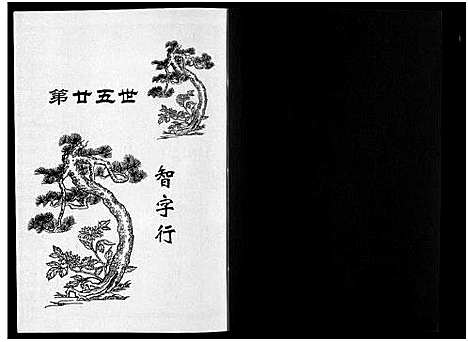 第廿五世
智字行